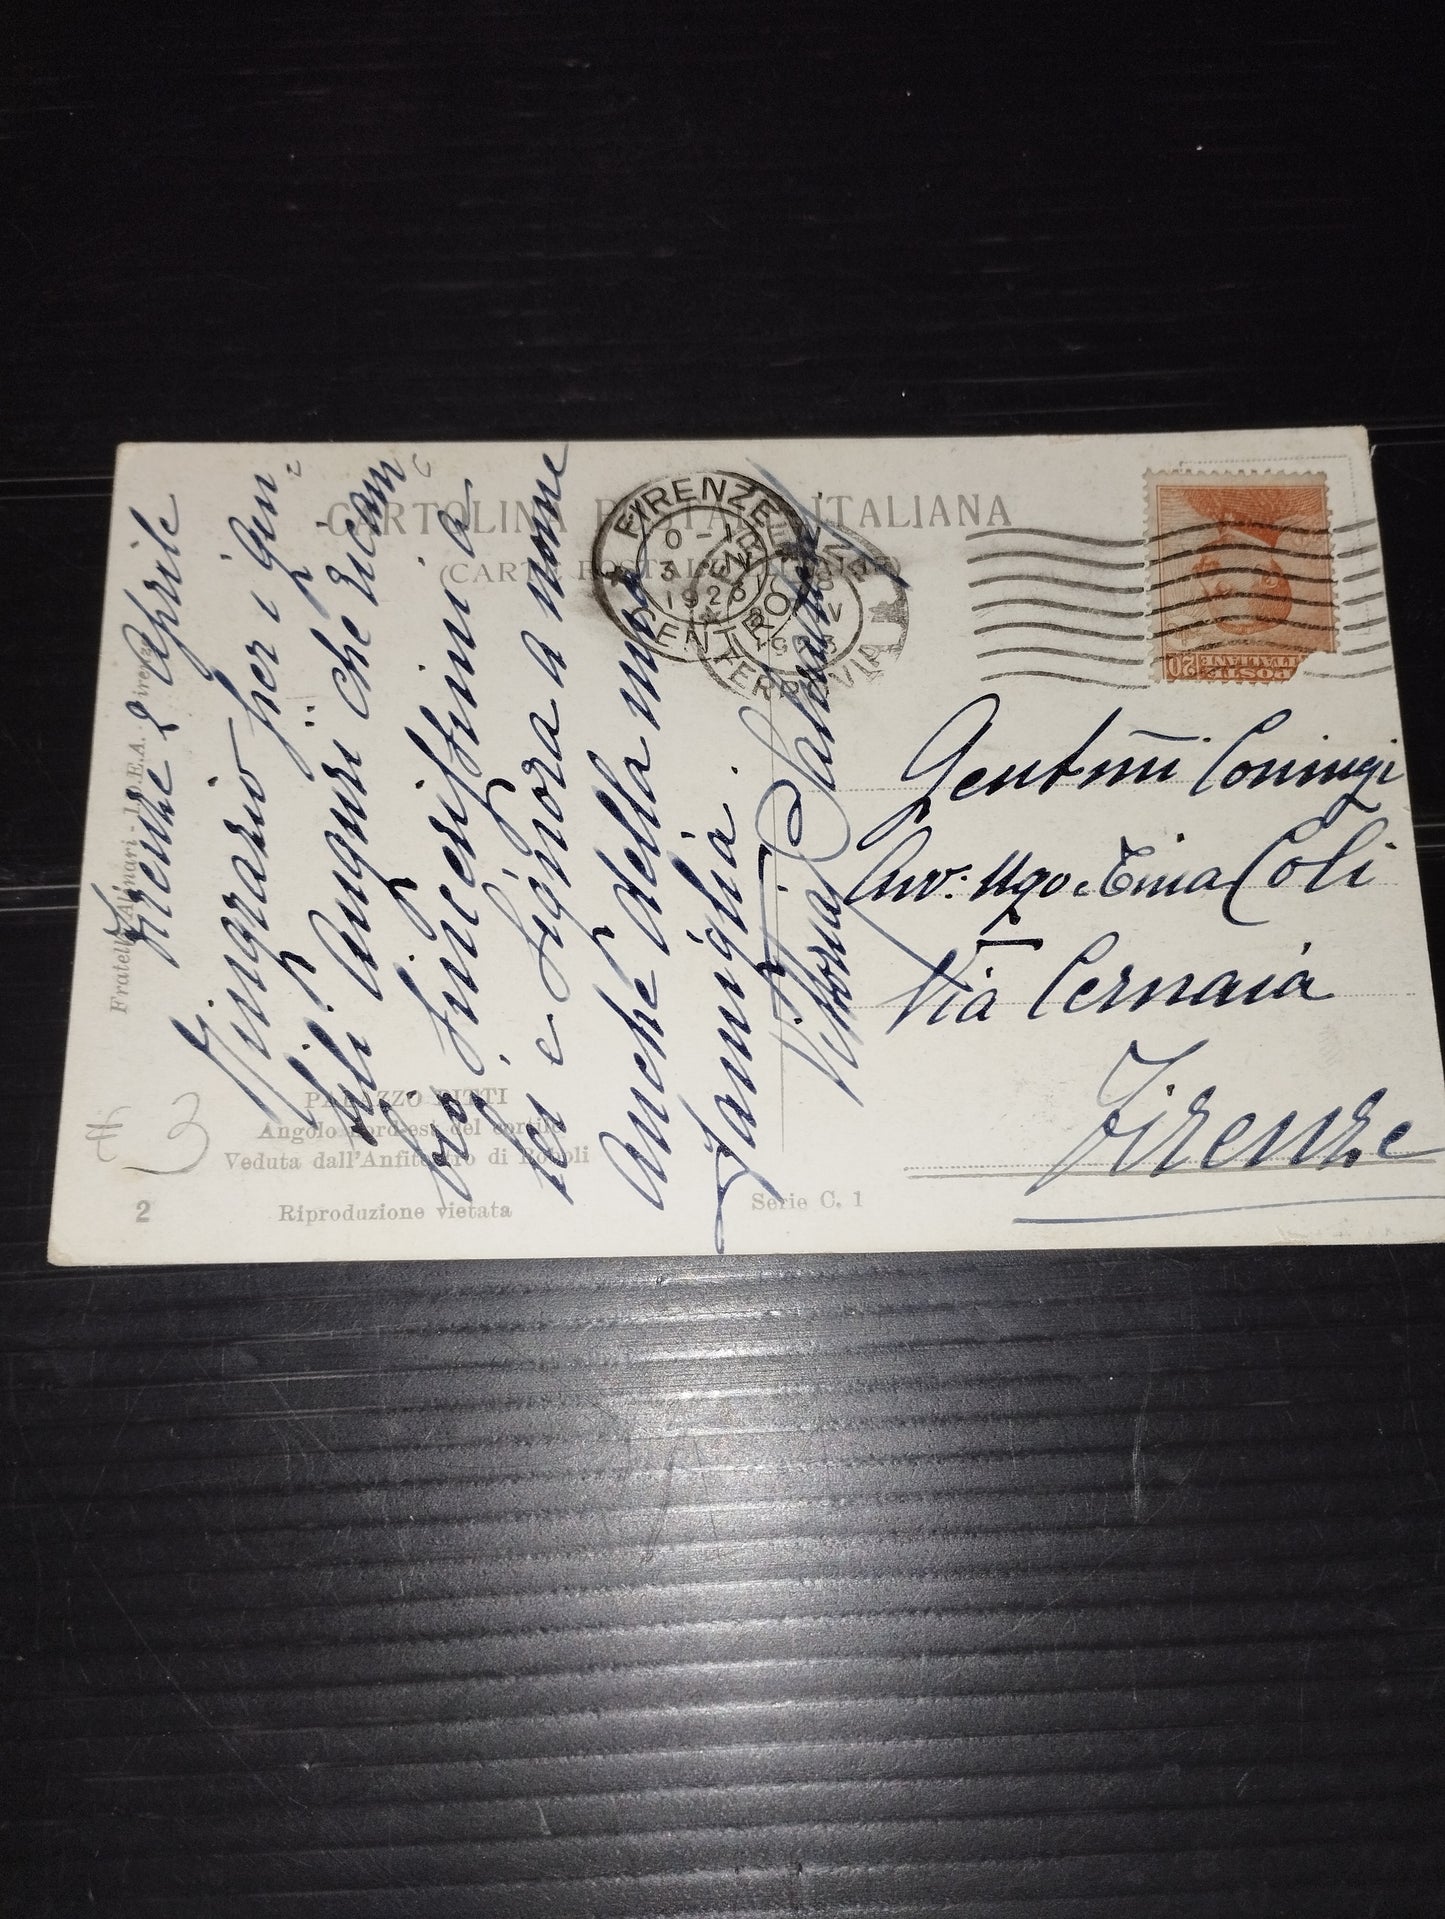 CARTOLINA POSTALE ITALIANA
(CARTE POSTALE D'ITALIE)
Fratelli Alinari - I.D.E.A. - Firenze
Firenze 2 Aprile
Ringrazio per i gen-
tili Auguri che ricam-
bio sincerissimi a
lei e Signora a nome
anche della mia
famiglia.
Vittoria
FIRENZE
0-1
3
1926
CENTRO
FERROVIA
POSTE ITALIANE
20
Gentmi Coniugi
Avv. Ugo e Tina Coli
Via Cernaia
Firenze
3
PALAZZO PITTI
Angolo nord-est del cortile
Veduta dall'Anfiteatro di Boboli
2
Riproduzione vietata
Serie C. 1